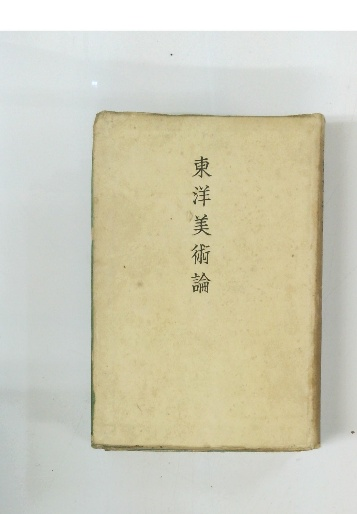 東洋美術論